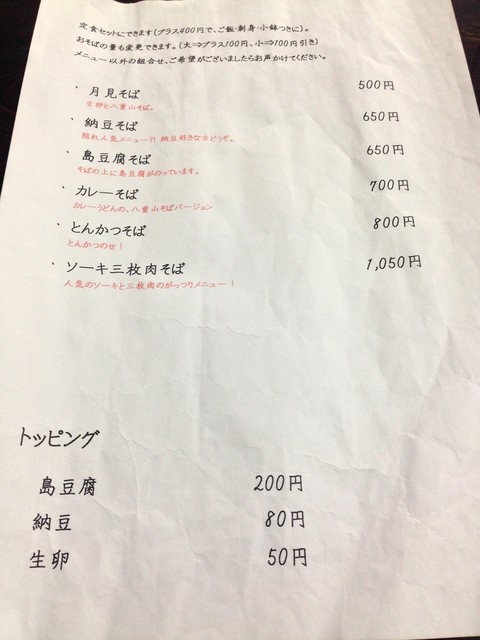 定食セットにできます(プラス400円で、ご飯・刺身・小鉢つきに)。
おそばの量も変更できます。(大⇒プラス100円、小⇒100円引き)
メニュー以外の組合せ、ご希望がございましたらお声かけてください。
・月見そば 500円
生卵と八重山そば。
・納豆そば 650円
隠れ人気メニュー?! 納豆好きな方どうぞ。
・島豆腐そば 650円
そばの上に島豆腐がのっています。
・カレーそば 700円
カレーうどんの、八重山そばバージョン
・とんかつそば 800円
とんかつのせ!
・ソーキ三枚肉そば 1,050円
人気のソーキと三枚肉のがっつりメニュー!
トッピング
島豆腐 200円
納豆 80円
生卵 50円